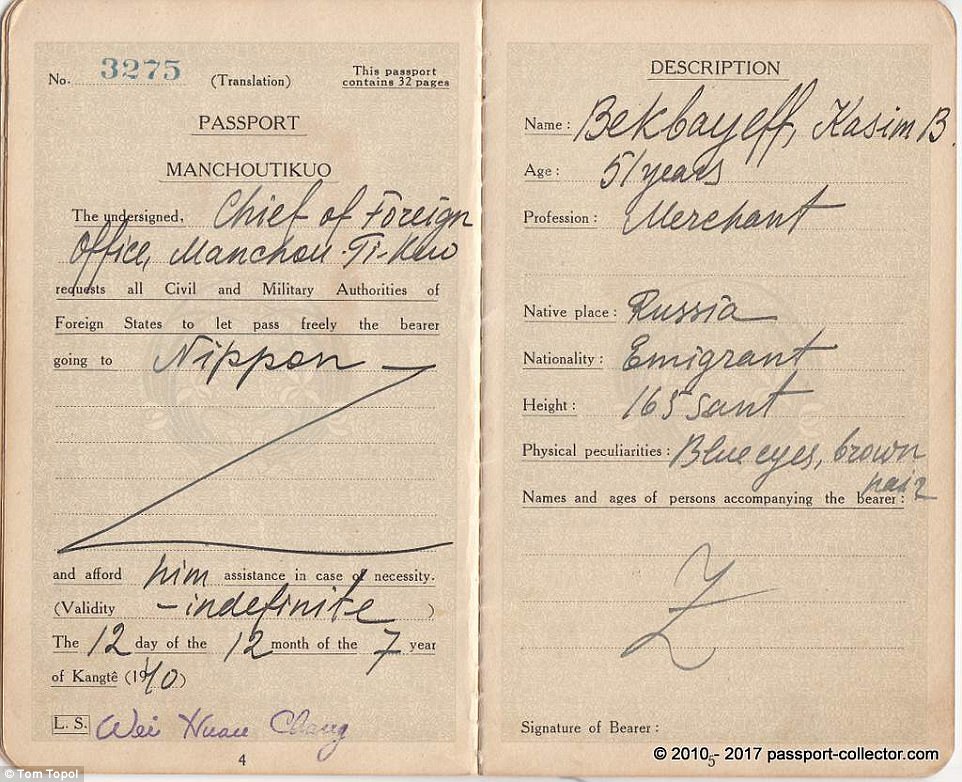 No. 3275 (Translation) This passport contains 32 pages
PASSPORT
MANCHOUTIKUO
The undersigned, Chief of Foreign
Office, Manchou-Ti-Kuo
requests all Civil and Military Authorities of
Foreign States to let pass freely the bearer
going to Nippon —
and afford him assistance in case of necessity.
(Validity - indefinite )
The 12 day of the 12 month of the 7 year
of Kangtê (1940)
L. S. Wei Huan Chang
4
© Tom Topol
DESCRIPTION
Name : Bekbayeff, Kasim B.
Age : 51 years
Profession : Merchant
Native place : Russia
Nationality : Emigrant
Height : 165 sant
Physical peculiarities : Blue eyes, brown
hair
Names and ages of persons accompanying the bearer :
Z
Signature of Bearer :
5
© 2010 - 2017 passport-collector.com